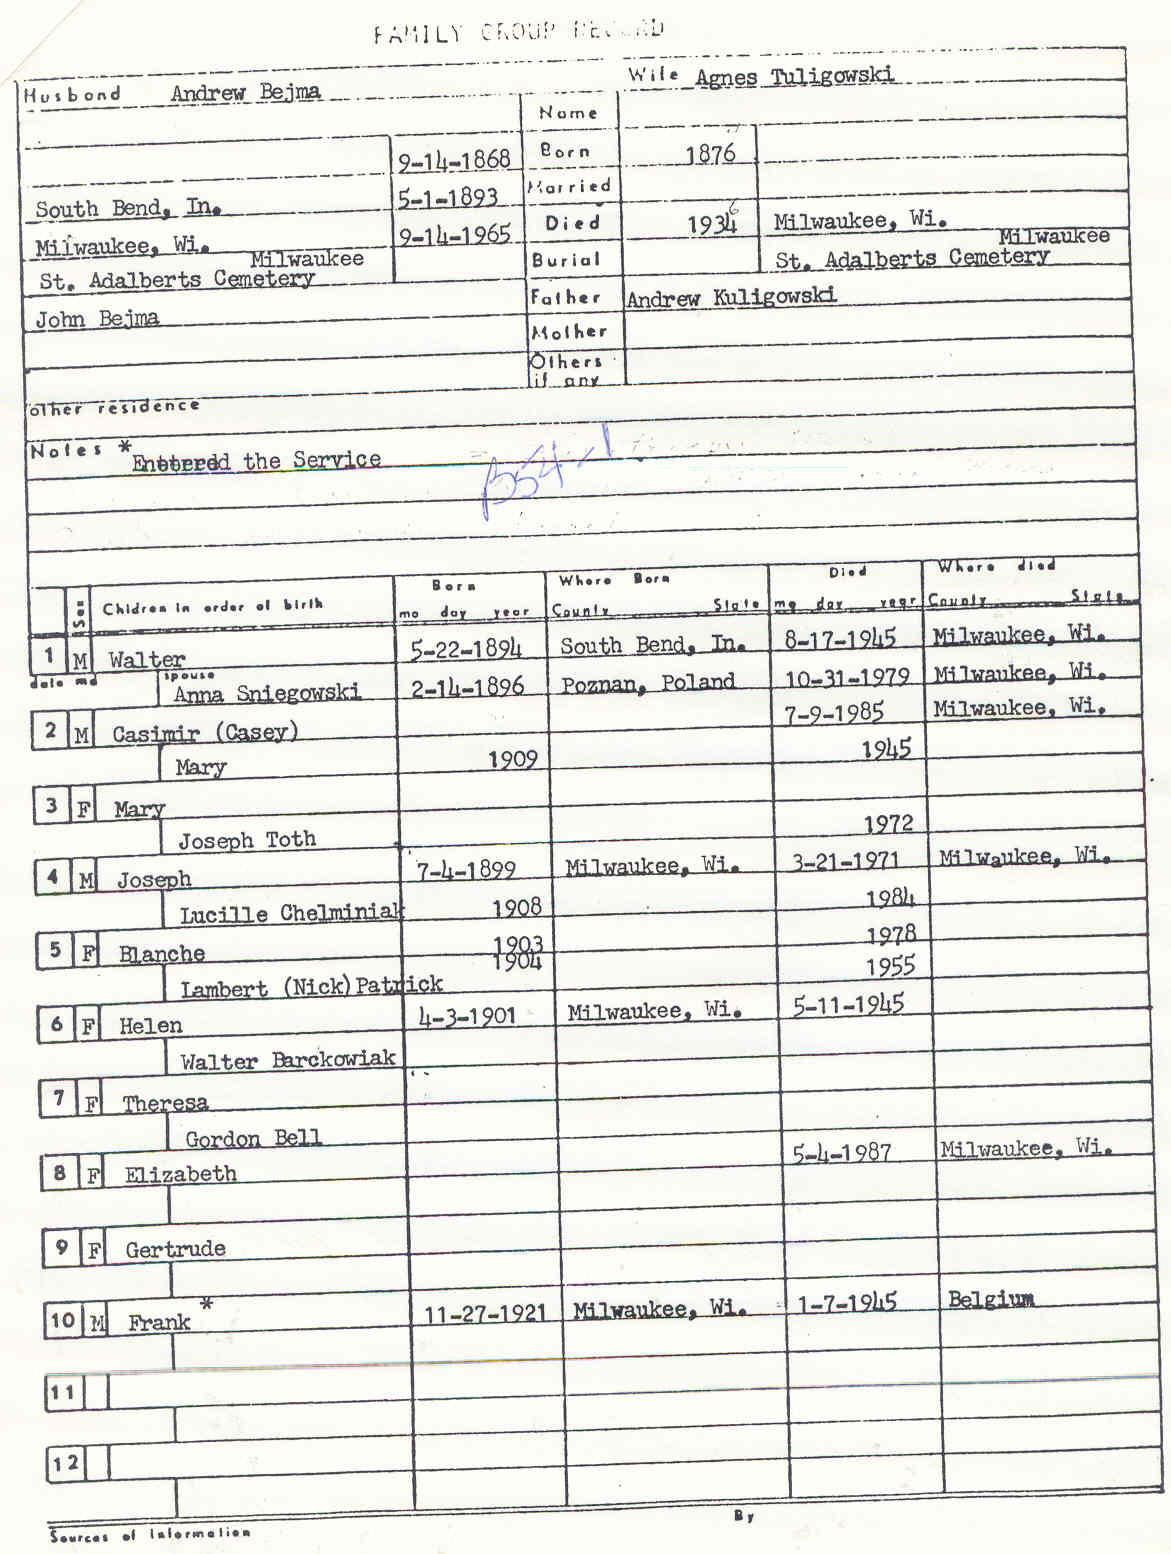 FAMILY GROUP RECORD
Husband Andrew Bejma Wife Agnes Tuligowski
Name
9-14-1868 Born 1876
South Bend, In. 5-1-1893 Married
Milwaukee, Wi. 9-14-1965 Died 1934 6 Milwaukee, Wi.
Milwaukee Burial Milwaukee
St. Adalberts Cemetery St. Adalberts Cemetery
John Bejma Father Andrew Kuligowski
Mother
Others
if any
other residence
Notes * Entered the Service
B54-1
Sex Children in order of birth Born Where Born Died Where died
mo day year County State mo day year County State
1 M Walter 5-22-1894 South Bend, In. 8-17-1945 Milwaukee, Wi.
date md spouse Anna Sniegowski 2-14-1896 Poznan, Poland 10-31-1979 Milwaukee, Wi.
2 M Casimir (Casey) 7-9-1985 Milwaukee, Wi.
Mary 1909 1945
3 F Mary
Joseph Toth 1972
4 M Joseph 7-4-1899 Milwaukee, Wi. 3-21-1971 Milwaukee, Wi.
Lucille Chelminiak 1908 1984
5 F Blanche 1903 1978
Lambert (Nick) Patrick 1904 1955
6 F Helen 4-3-1901 Milwaukee, Wi. 5-11-1945
Walter Barckowiak
7 F Theresa
Gordon Bell
8 F Elizabeth 5-4-1987 Milwaukee, Wi.
9 F Gertrude
10 M Frank * 11-27-1921 Milwaukee, Wi. 1-7-1945 Belgium
11
12
Sources of Information By